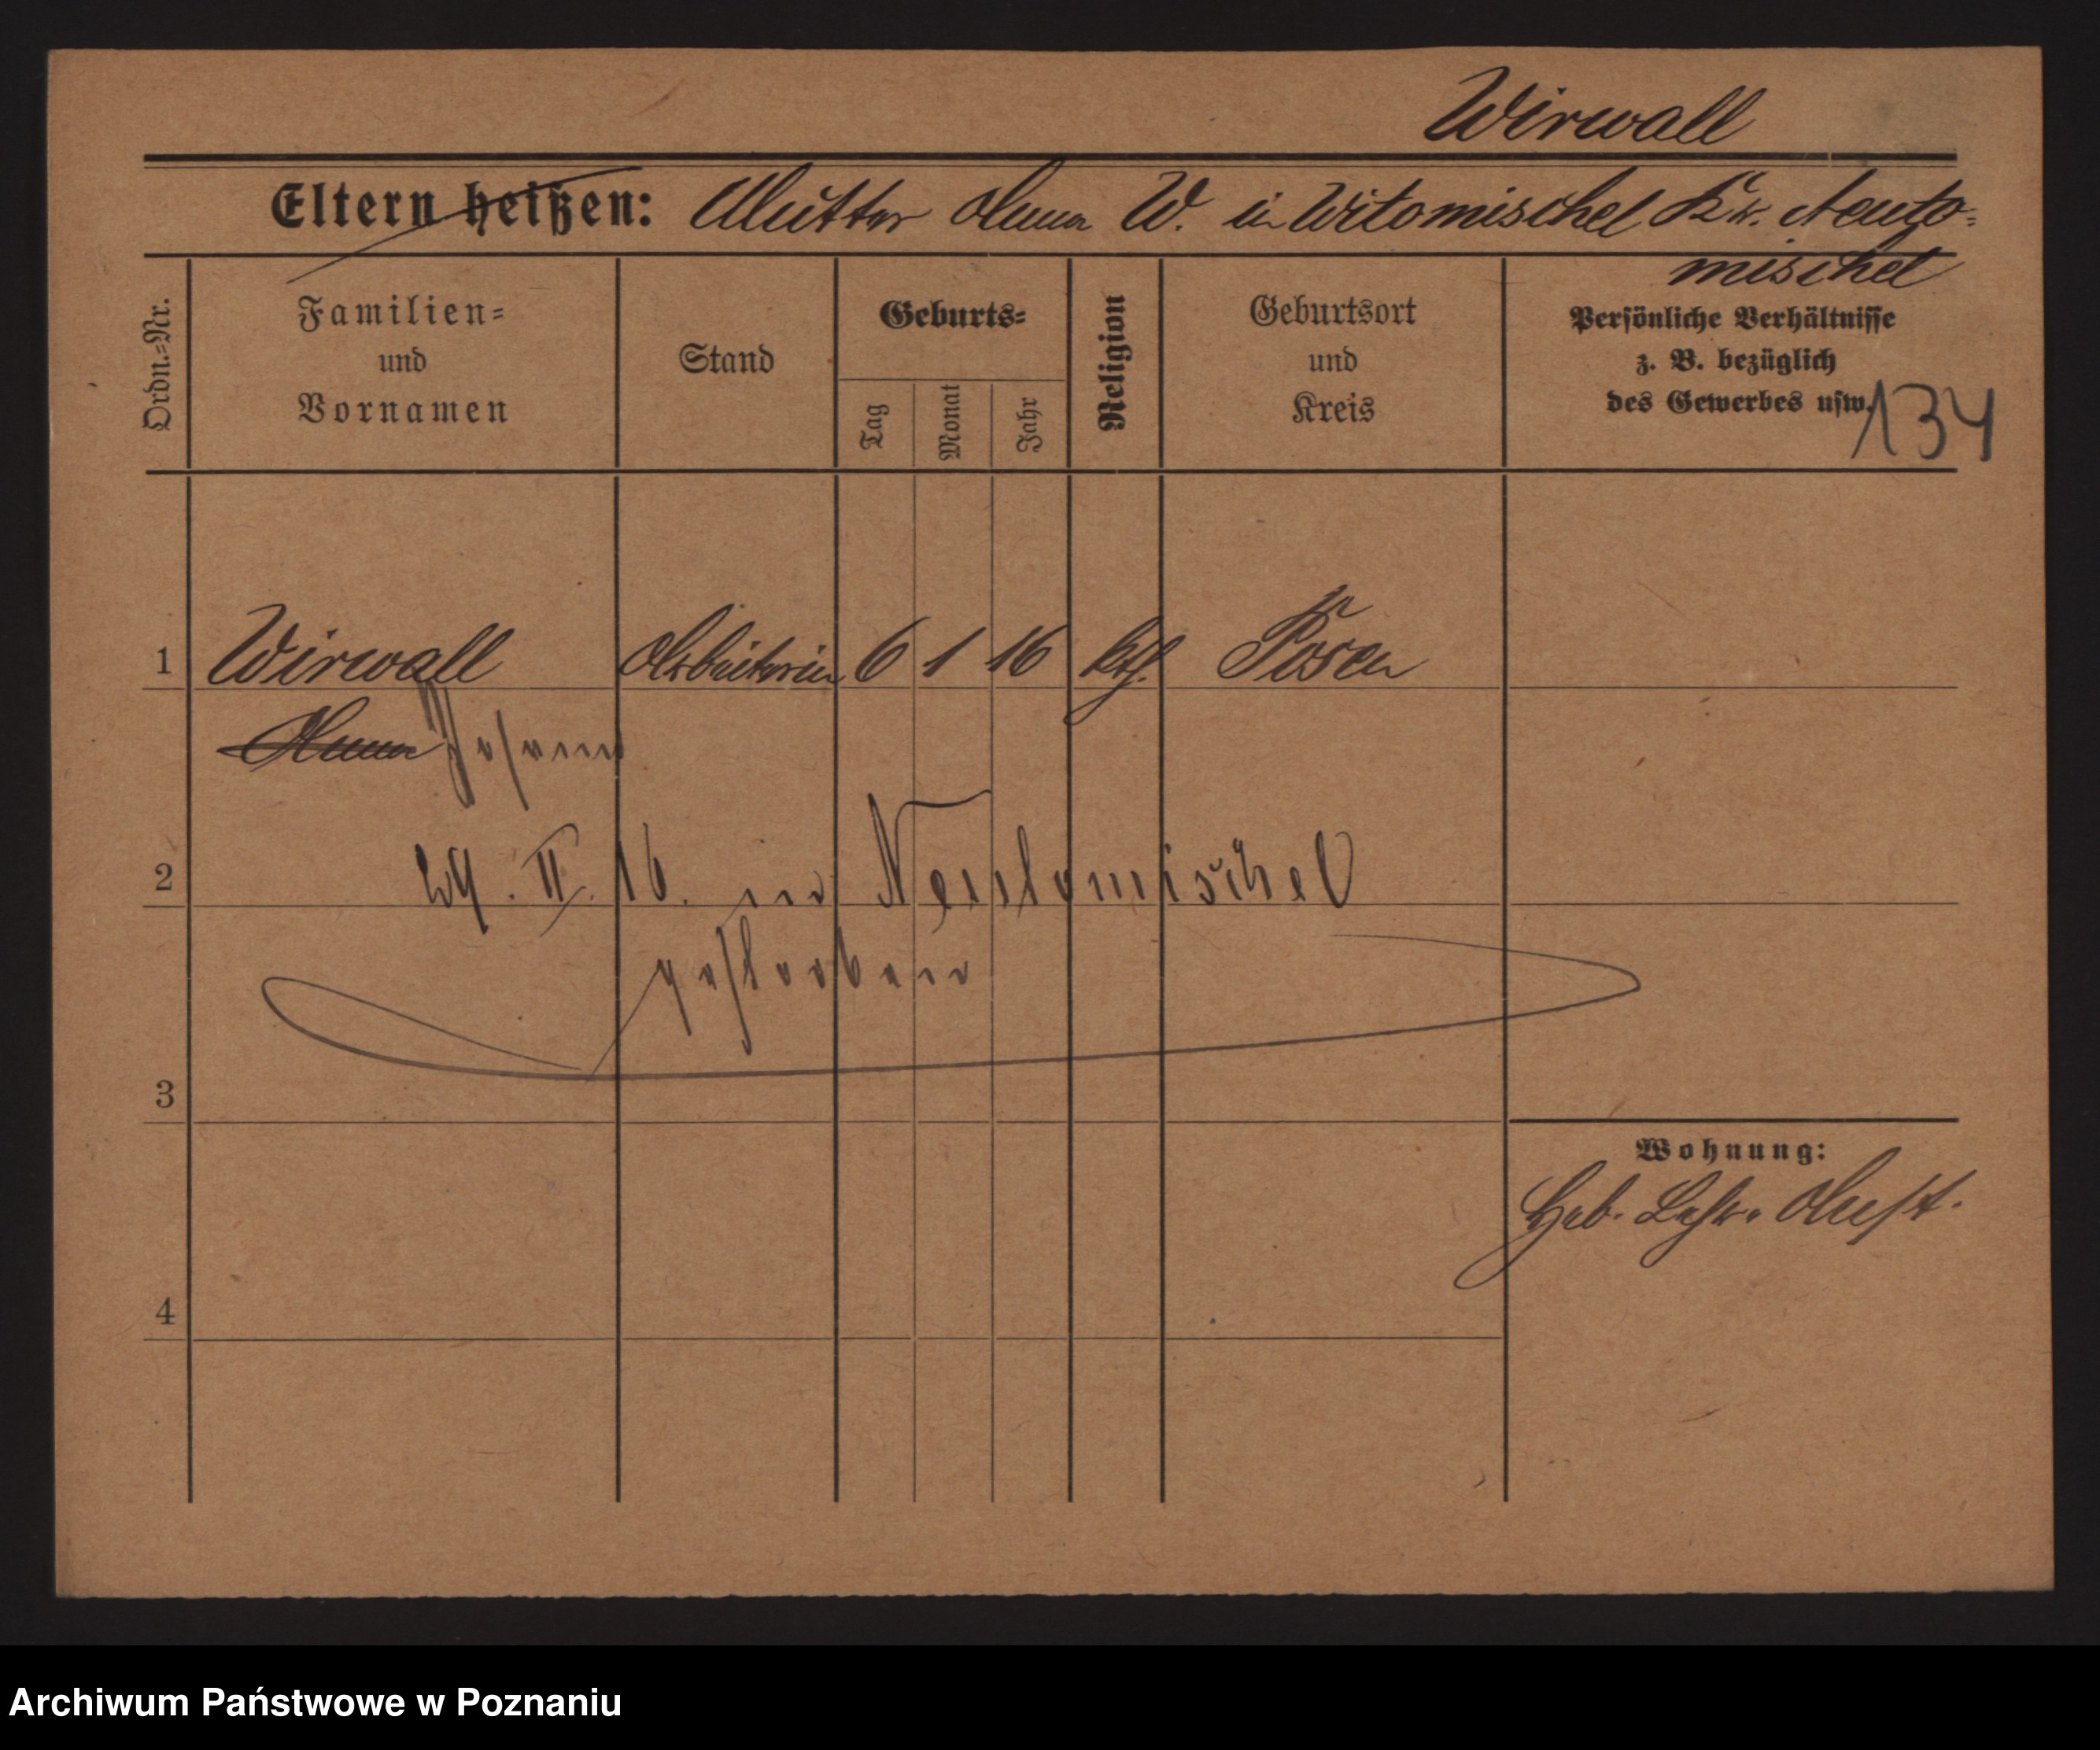 Wirwall
Eltern heißen: Mutter Anna W. in Witomischel Kr. Neuto=
mischel
Ordn.=Nr.
Familien=
und
Vornamen
Stand
Geburts=
Tag
Monat
Jahr
Religion
Geburtsort
und
Kreis
Persönliche Verhältnisse
z. B. bezüglich
des Gewerbes usw.
134
1 Wirwall Arbeiterin 6 1 16 kth. Posen
Anna Johann
2 29. II. 16. in Neutomischel
gestorben
3
Wohnung:
Heb. Lehr. Anst.
4
Archiwum Państwowe w Poznaniu